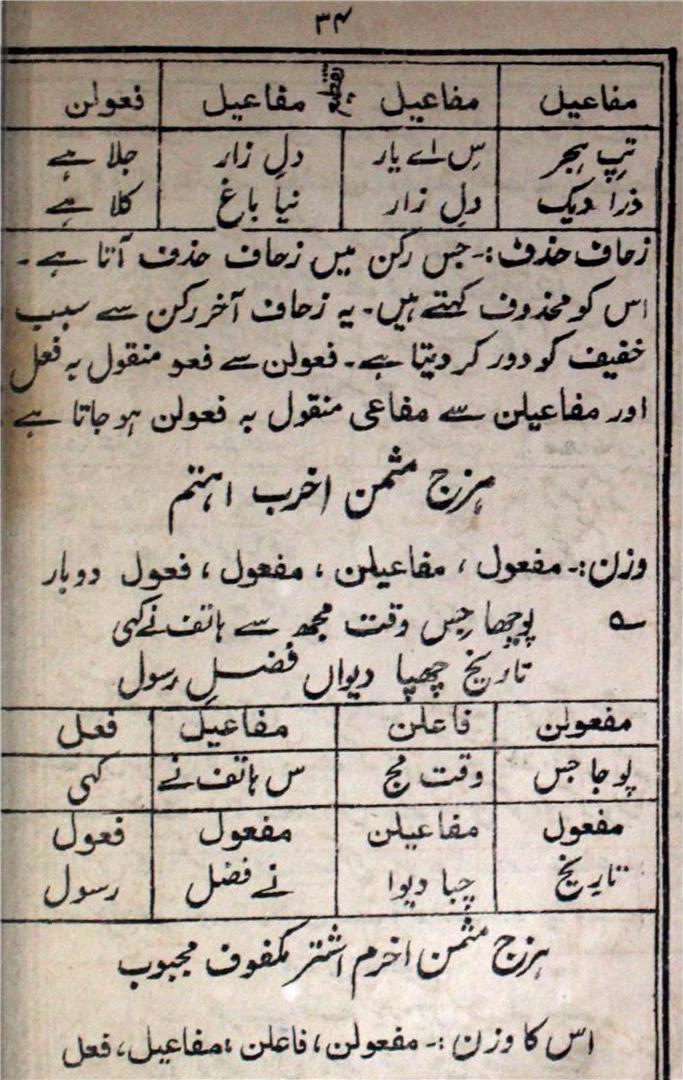 ۳۴
مفاعیل مفاعیل تقطیع مفاعیل فعولن
تپِ ہجر سِ اے یار دلِ زار جلا ہے
ذرا دیک دلِ زار نیا باغ کلا ہے
زحاف حذف:۔ جس رکن میں زحاف حذف آتا ہے۔
اس کو محذوف کہتے ہیں۔ یہ زحاف آخر رکن سے سبب
خفیف کو دور کر دیتا ہے۔ فعولن سے فعو منقول بہ فعل
اور مفاعیلن سے مفاعی منقول بہ فعولن ہو جاتا ہے
ہزج مثمن اخرب اہتم
وزن:۔ مفعول، مفاعیلن، مفعول، فعول دو بار
؎ پوچھا جس وقت مجھ سے ہاتف نے کہی
تاریخ چھپا دیواں فضلِ رسول
مفعولن فاعلن مفاعیل فعل
پوجا جس وقت مج س ہاتف نے کہی
مفعول مفاعیلن مفعول فعول
تاریخ چپا دیوا نے فضل رسول
ہزج مثمن اخرم اشتر مکفوف مجبوب
اس کا وزن:۔ مفعولن، فاعلن، مفاعیل، فعل